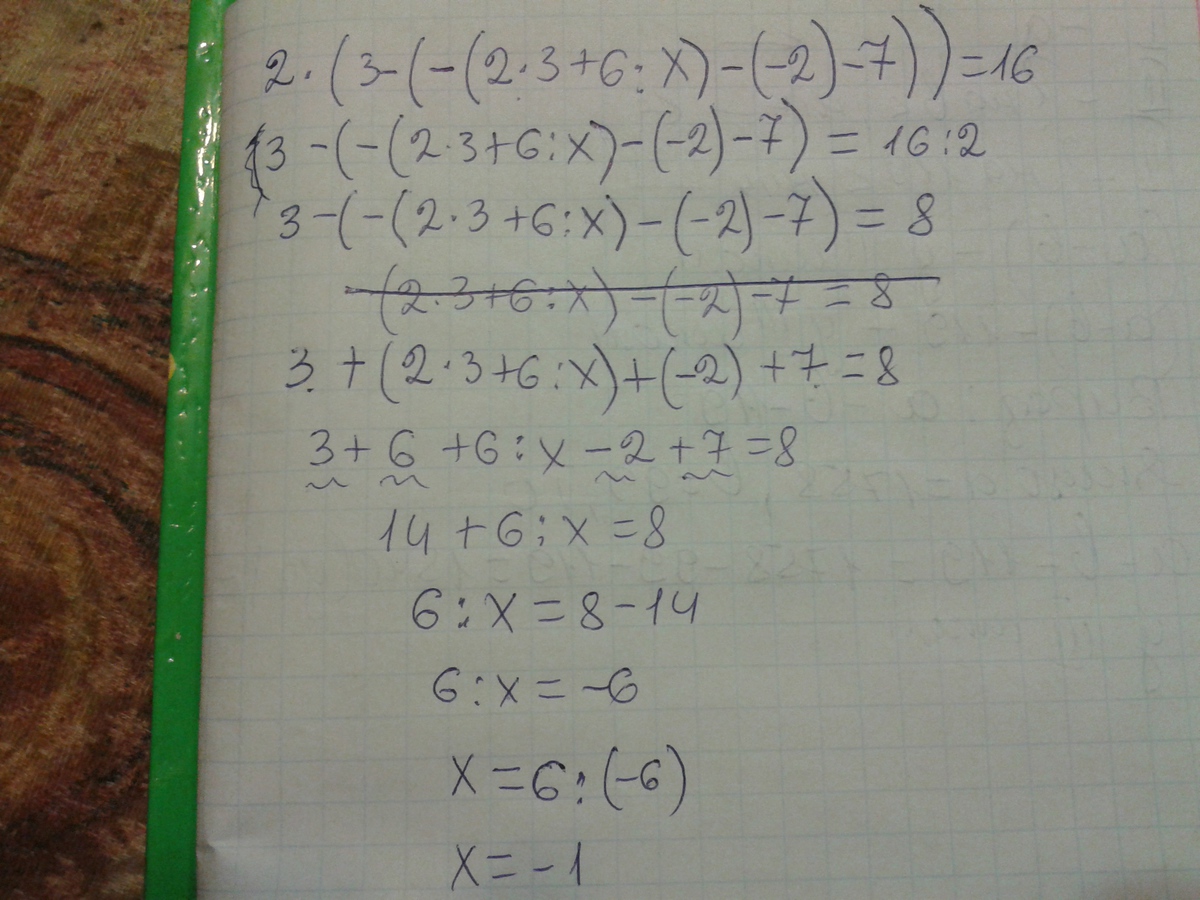 2·(3-(-(2·3+6:x)-(-2)-7))=16
(3-(-(2·3+6:x)-(-2)-7)=16:2
3-(-(2·3+6:x)-(-2)-7)=8
(2·3+6:x)-(-2)-7=8
3+(2·3+6:x)+(-2)+7=8
3+6+6:x-2+7=8
14+6:x=8
6:x=8-14
6:x=-6
x=6:(-6)
x=-1